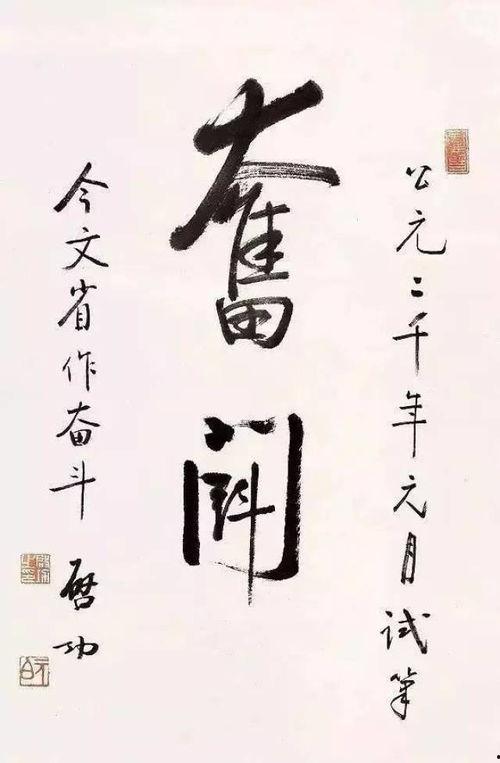 公元二千年元月试筆
奮闘
今文省作奋斗
啓功